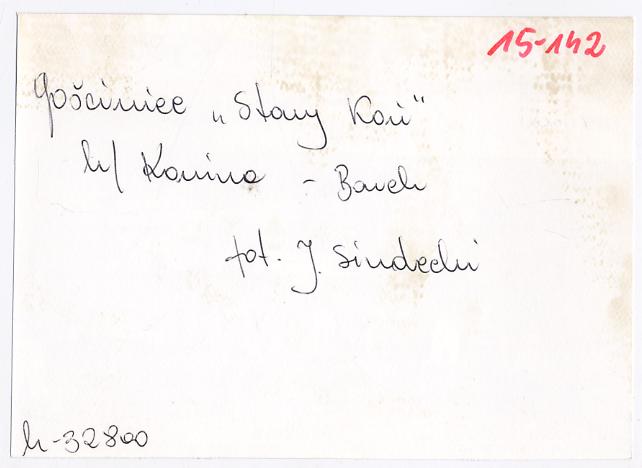 15-142
Gościniec „Stary Koń"
k/ Konina - Barek
fot. J. Sindecki
k-32800